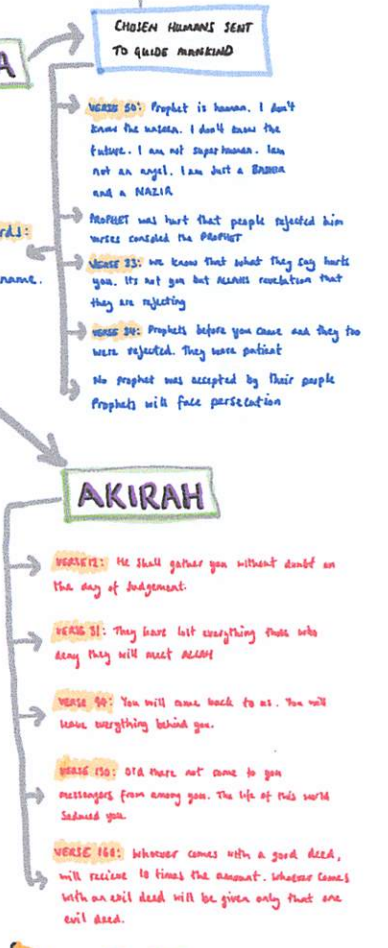 CHOSEN HUMANS SENT
TO GUIDE MANKIND
A
VERSE 50: Prophet is human. I don't
know the unseen. I don't know the
future. I am not super human. Iam
not an angel. I am Just a
and a NAZIR
PROPHET was hurt that people rejected him
verses consoled the PROPHET
VERSE 33: we know that what they say hurts
you. It's not you but ALLAHS revelation that
they are rejecting
VERSE 34: Prophets before you came and they too
were rejected. They were patient
No prophet was accepted by their people
Prophets will face persecution
rds:
name.
AKIRAH
VERSE 12: He shall gather you without doubt on
the day of Judgement.
VERSE 31: They have lost everything those who
deny they will meet ALLAH
VERSE 94: You will come back to us. You will
leave everything behind you.
VERSE 130: Did there not come to you
messengers from among you. The life of this world
seduced you.
VERSE 160: Whoever comes with a good deed,
will recieve 10 times the amount. Whoever comes
with an evil deed will be given only that one
evil deed.